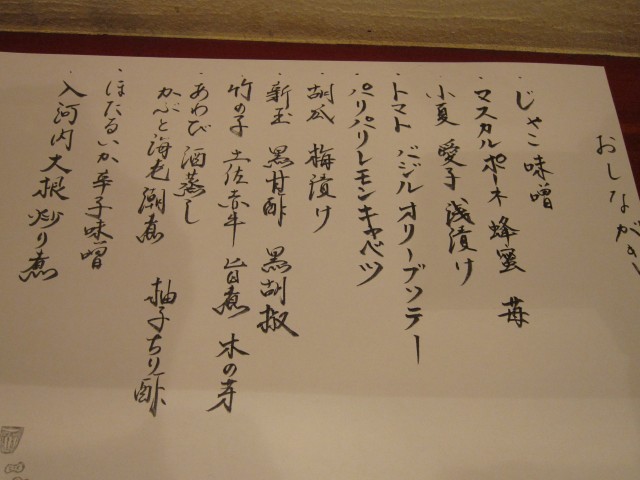 おしながき
・じゃこ味噌
・マスカルポーネ 蜂蜜 苺
・小夏 愛子 浅漬け
・トマト バジル オリーブソテー
・パリパリレモンキャベツ
・胡瓜 梅漬け
・新玉 黒甘酢 黒胡椒
・竹の子 土佐赤牛 旨煮 木の芽
・あわび 酒蒸し
かぶと海老潮煮 柚子ちり酢
・ほたるいか辛子味噌
・入河内大根炒り煮